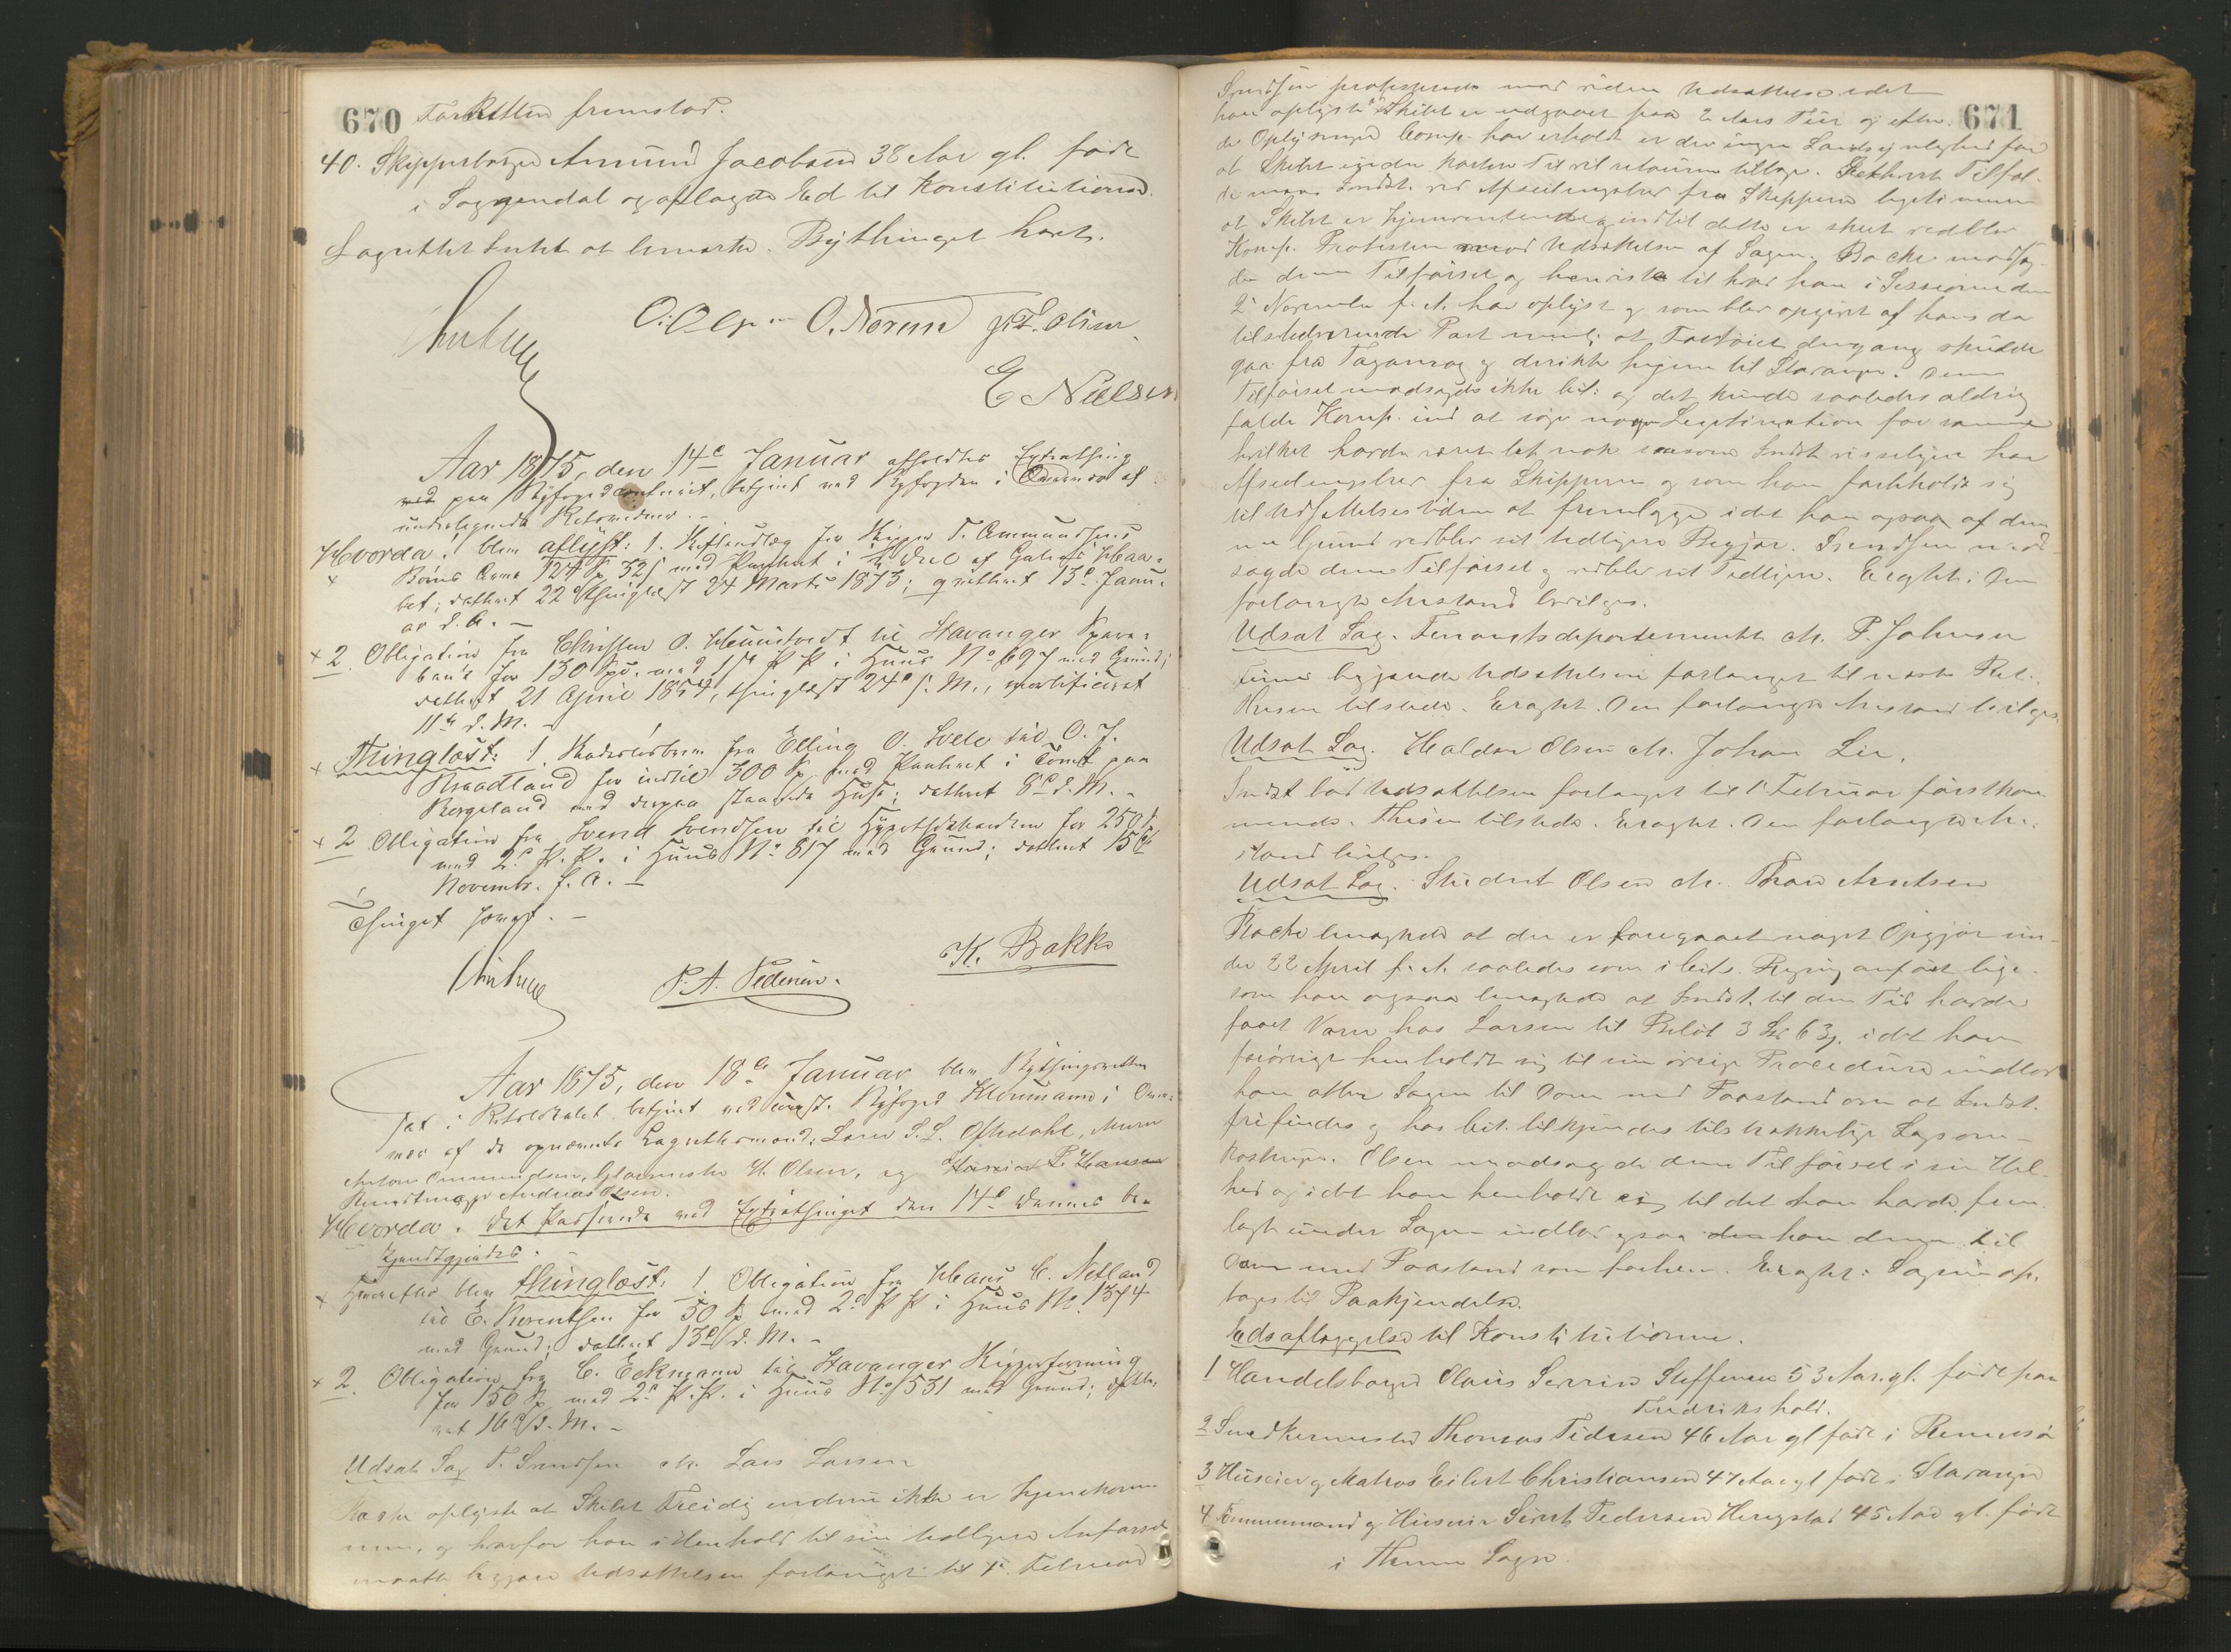 670 For Retten fremstod.
40. Skipperborger Amund Jacobsen 38 Aar gl. født
i Soggendal og aflagde Ed til Konstitutionen.
Lagrettet Intet at bemærke. Bythinget hævet.
O. Olsen O. Norem
E Nielsen
Aar 1875, den 14e Januar afholdtes Extrathing
ved paa Byfogedcontoiret, betjent ved Byfogden i Overvær af
undertegnede Retsvidner.
Hvorda: blev aflyst: 1. Skifteudlæg for Skipper T. Ammundsens
Børns Arve 124 Sp 52 s med Panteret i 1/4 Deel af Galeas Haa-
bet; dateret 22 thinglæst 24 Marts 1873; qvitteret 13e Janu-
ar d. A. -
2. Obligation fra Christen O. til Stavanger Spare-
bank for 130 Spd. med 1ste P. P. i Huus No 697 med Grund;
dateret 21 April 1854, thinglæst 24e s. M., mortificeret
11te d. M. -
Thinglæst: 1. Skadesløsbrev fra Elling O. Svele til O. J.
Braadland for indtil 300 Sp med Panteret i Tomt paa
Bergeland med derpaa staaende Huse; dateret 8e d. M. -
2 Obligation fra Svend Svendsen til Hypothekbanken for 250 Sp
med 2e P. P. i Huus No 817 med Grund; dateret 15de
Novembr. f. A. -
Thinget hævet. -
P. A. Pedersen. K. Bakke
Aar 1875, den 18e Januar blev Bythingsretten
sat i Retslokalet betjent ved const. Byfoged Kloumann i Over-
vær af de opnævnte Lagrettesmænd: Lærer S. L. Oftedahl, Murer
Anton Ommundsen, Glarmester H. Olsen, og P. Hansen
Andreas Olsen.
Hvorda. Det Passerede ved Extrathinget den 14e dennes be-
kjendtgjordes.
Herefter blev thinglæst: 1. Obligation fra Hans C. Netland
til E. Berentsen for 50 Sp med 2e P P i Huus No 1374
med Grund; dateret 13e d. M. -
2. Obligation fra C. Eckmann til Stavanger Skipperforening
for 150 Sp med 2e P. P. i Huus No 531 med Grund; date-
ret 16e d. M. -
Udsat Sag T. Svendsen ctr. Lars Larsen
Bache oplyste at Skibet Freidig endnu ikke er hjemkom-
men, og hvorfor han i Henhold til sin tidligere Anførsel
maatte begjære Udsættelsen forlænget til 1e Februar
671
Svendsen protesterede mod videre Udsættelse idet
han oplyste at Skibet er udgaaet paa 2 Aars Tur og efter
de Oplysninger Comp. har erholdt er der ingen Sandsynlighed for
at Skibet inden næste Til vil returnere tilbage. I ethvert Tilfæl-
de maa Indst. ved Afseilingsbrev fra Skipperen legitimere
at Skibet er hjemventende og indtil dette er skeet vedblev
Komp. Protesten mod Udsættelse af Sagen. Bache modsag-
de denne Tilførsel og henviste til hvad han i Sessionen den
2 November f. A. har oplyst og som blev opgivet af hans da
tilstedeværende Part neml: at Fartøiet dengang skulde
gaa fra Taganrog og direkte hjem til Stavanger. Denne
Tilførsel modsagdes ikke Cit: og det kunde saaledes aldrig
falde Komp. ind at søge nogen Legitimation for samme
hvilket havde været let nok saasom Indst visseligen har
Afseilingsbrev fra Skipperen og som han forbeholdt sig
til Udsættelsestiden at fremlægge idet han ogsaa af den-
ne Grund vedblev sit tidligere Begjær. Svendsen mod-
sagde denne Tilførsel og vedblev sit Tidligere. Eragtet: Den
forlangte Anstand bevilges.
Udsat Sag. Finantsdepartementet ctr. P. Johnsen
begjærede Udsættelsen forlænget til næste Ret.
tilstede. Eragtet. Den forlangte Anstand bevilges.
Udsat Sag. Haldor Olsen ctr. Johan Lie.
Indst bad Udsættelsen forlænget til 1 Februar førstkom-
mende. tilstede. Eragtet. Den forlangte An-
stand bevilges.
Udsat Sag. Student Olsen ctr. Thore Arntsen
Bache benegtede at der er foregaaet noget Opgjør un-
der 22 April f. A. saaledes som i Cits. Regning anført lige-
som han ogsaa benegtede at Indst. til den Tid havde
faaet Varer hos Larsen til Beløb 3 Sp 63 s. idet han
forøvrigt henholdt sig til sin øvrige Procedure indlod
han atter Sagen til Dom med Paastand om at Indst.
frifindes og hos Cit. tilkjendes tilstrækkelige Sagsom-
kostninger. Olsen modsagde denne Tilførsel i sin Hel-
hed og idet han henholdt sig til det han havde frem-
lagt under Sagen indlod ogsaa han denne til
Dom med Paastand som forhen. Eragtet: Sagen op-
tages til Paakjendelse.
Edsaflæggelse til Konstitutionen.
1 Handelsborger Claus Severin Steffensen 53 Aar gl. født paa
Fredrikshald.
2 Snedkermester Thomas Pedersen 46 Aar gl født i Rennesø
3 Huseier og Matros Eilert Christiansen 47 Aar gl født i Stavanger
4 Tømmermand og Huseier Sivert Pedersen Hengstad 45 Aar gl. født
i Sogn